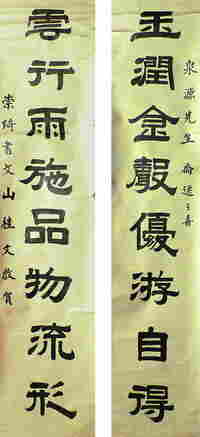 泉源先生 喬遷之喜
玉潤金聲優游自得
雲行雨施品物流形
崇綺書文山桂文敬賀